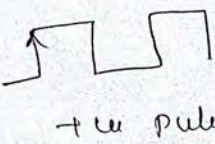 +ve pulse